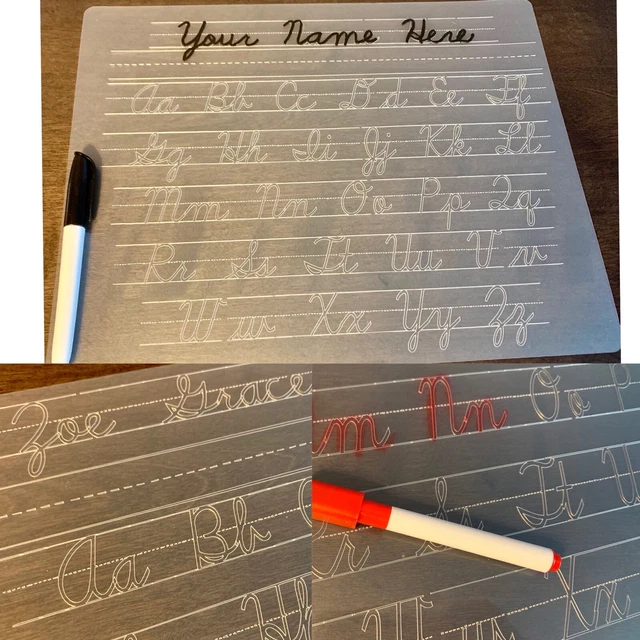 Your Name Here
Aa Bb Cc Dd Ee Ff
Gg Hh Ii Jj Kk Ll
Mm Nn Oo Pp Qq
Rr Ss Tt Uu Vv
Ww Xx Yy Zz
Zoe Grace
Aa Bb
Hh
m Nn Oo P
r Ss Tt U
Ww Xx